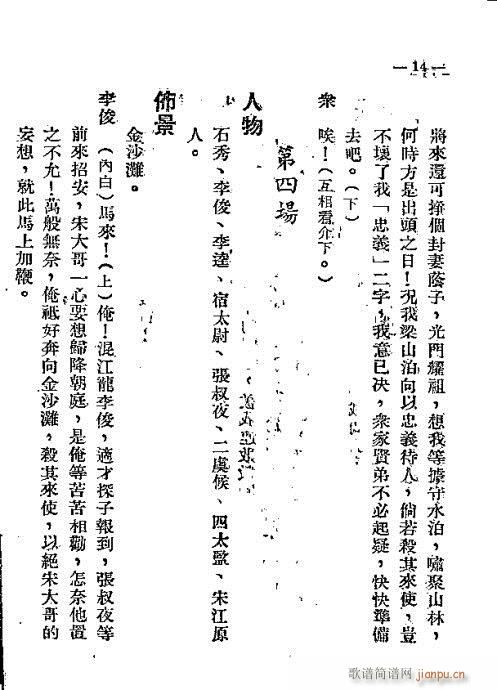 —14—
將來還可掙個封妻蔭子，光門耀祖，想我等據守水泊，嘯聚山林，
何時方是出頭之日！況我梁山泊向以忠義待人，倘若殺其來使，豈
不壞了我「忠義」二字，我意已决，衆家賢弟不必起疑，快快準備
去吧。（下）
衆　唉！（互相看介下。）
第四場
人物　石秀、李俊、李逵、宿太尉、張叔夜、二虞候、四太監、宋江原
人。
佈景　金沙灘。
李俊　（內白）馬來！（上）俺！混江龍李俊，適才探子報到，張叔夜等
前來招安，宋大哥一心要想歸降朝庭，是俺等苦苦相勸，怎奈他置
之不允！萬般無奈，俺祗好奔向金沙灘，殺其來使，以絕宋大哥的
妄想，就此馬上加鞭。
歌谱简谱网
jianpu.cn